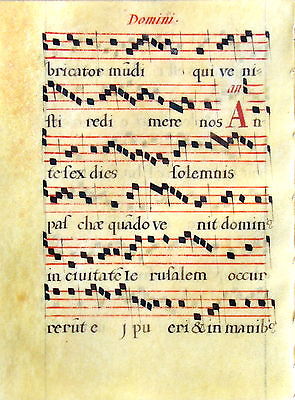 Domini.
bricator mũdi qui ve ni
an
sti redi mere nos A n
te sex dies solemnis
pas chæ quãdo ve nit domin9
in ciuitatẽ Ie rusalem occur
rerũt e j pu eri & in manib9